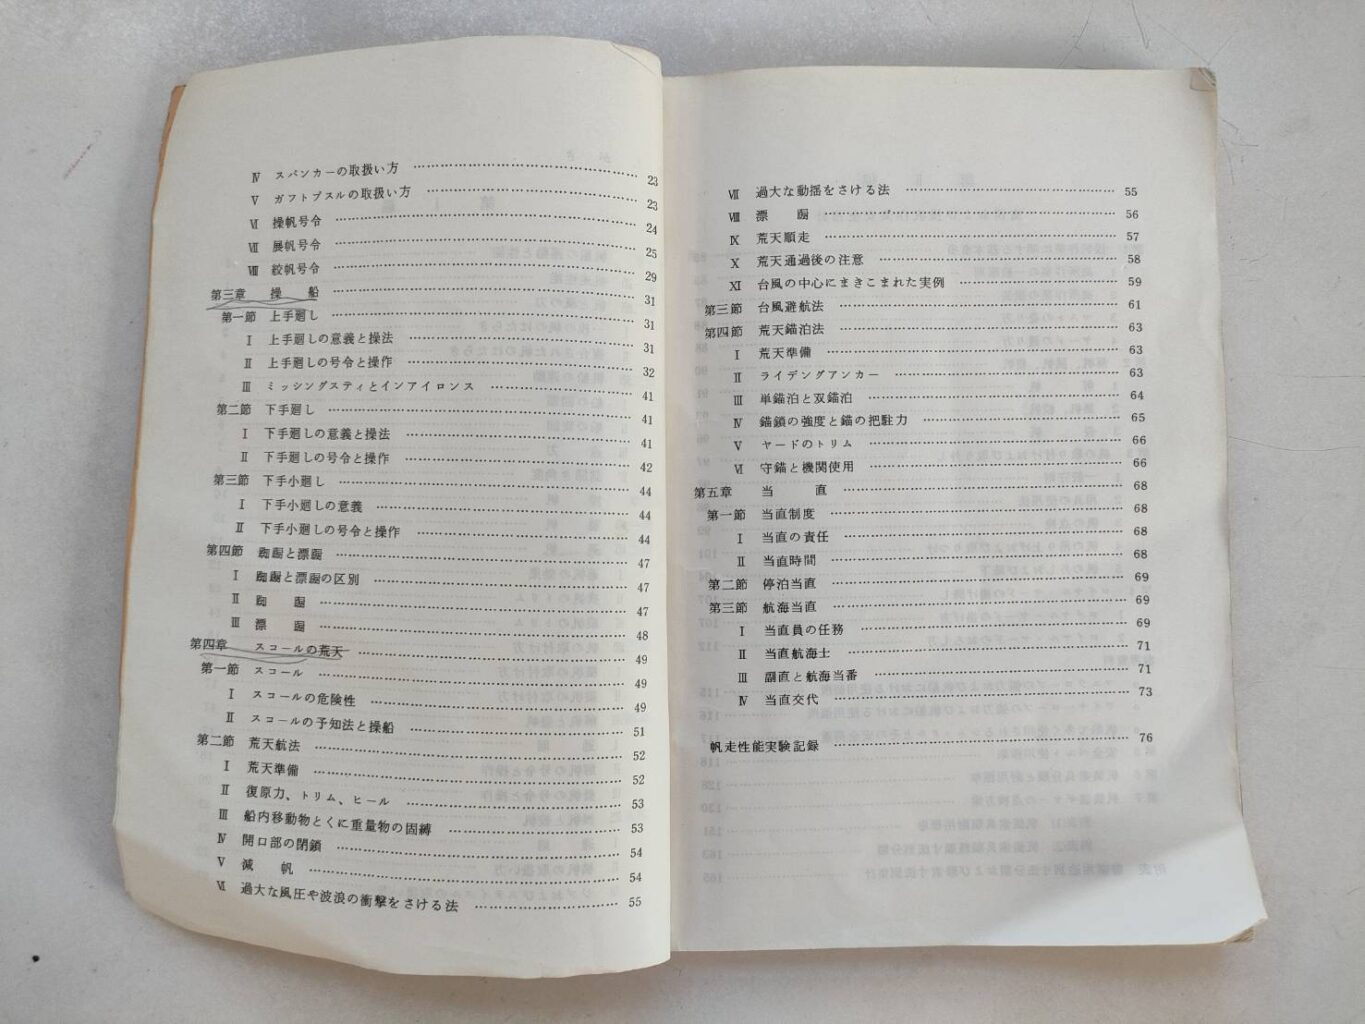 Ⅳ スパンカーの取扱い方 23
Ⅴ ガフトプスルの取扱い方 23
Ⅵ 操帆号令 24
Ⅶ 展帆号令 25
Ⅷ 絞帆号令 29
第三章 操 船 31
第一節 上手廻し 31
Ⅰ 上手廻しの意義と操法 31
Ⅱ 上手廻しの号令と操作 32
Ⅲ ミッシングスティとインアイロンス 41
第二節 下手廻し 41
Ⅰ 下手廻しの意義と操法 41
Ⅱ 下手廻しの号令と操作 42
第三節 下手小廻し 44
Ⅰ 下手小廻しの意義 44
Ⅱ 下手小廻しの号令と操作 44
第四節 踟躊と漂躊 47
Ⅰ の区別 47
Ⅱ 47
Ⅲ 漂 48
第四章 スコールの荒天 49
第一節 スコール 49
Ⅰ スコールの危険性 49
Ⅱ スコールの予知法と操船 51
第二節 荒天航法 52
Ⅰ 荒天準備 52
Ⅱ 復原力、トリム、ヒール 53
Ⅲ 船内移動物とくに重量物の固縛 53
Ⅳ 開口部の閉鎖 54
Ⅴ 減 帆 54
Ⅵ 過大な風圧や波浪の衝撃をさける法 55
Ⅶ 過大な動揺をさける法 55
Ⅷ 漂 56
Ⅸ 荒天順走 57
Ⅹ 荒天通過後の注意 58
Ⅺ 台風の中心にまきこまれた実例 59
第三節 台風避航法 61
第四節 荒天錨泊法 63
Ⅰ 荒天準備 63
Ⅱ ライデングアンカー 63
Ⅲ 単錨泊と双錨泊 64
Ⅳ 錨鎖の強度と錨の把駐力 65
Ⅴ ヤードのトリム 66
Ⅵ 守錨と機関使用 66
第五章 当 直 68
第一節 当直制度 68
Ⅰ 当直の責任 68
Ⅱ 当直時間 68
第二節 停泊当直 69
第三節 航海当直 69
Ⅰ 当直員の任務 69
Ⅱ 当直航海士 71
Ⅲ 副直と航海当番 71
Ⅳ 当直交代 73
帆走性能実験記録 76